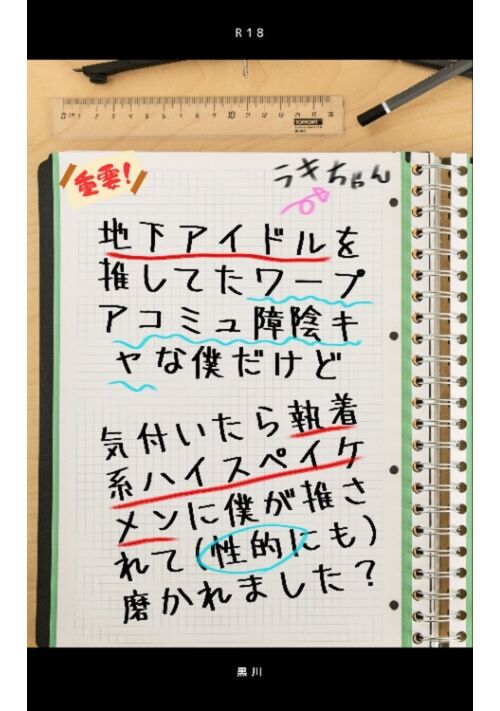 R18
TOPPOINT
重要!
ラキちゃん
地下アイドルを
推してたワープ
アコミュ障陰キ
ャな僕だけど
気付いたら執着
系ハイスペイケ
メンに僕が推さ
れて(性的にも)
磨かれました?
黒川